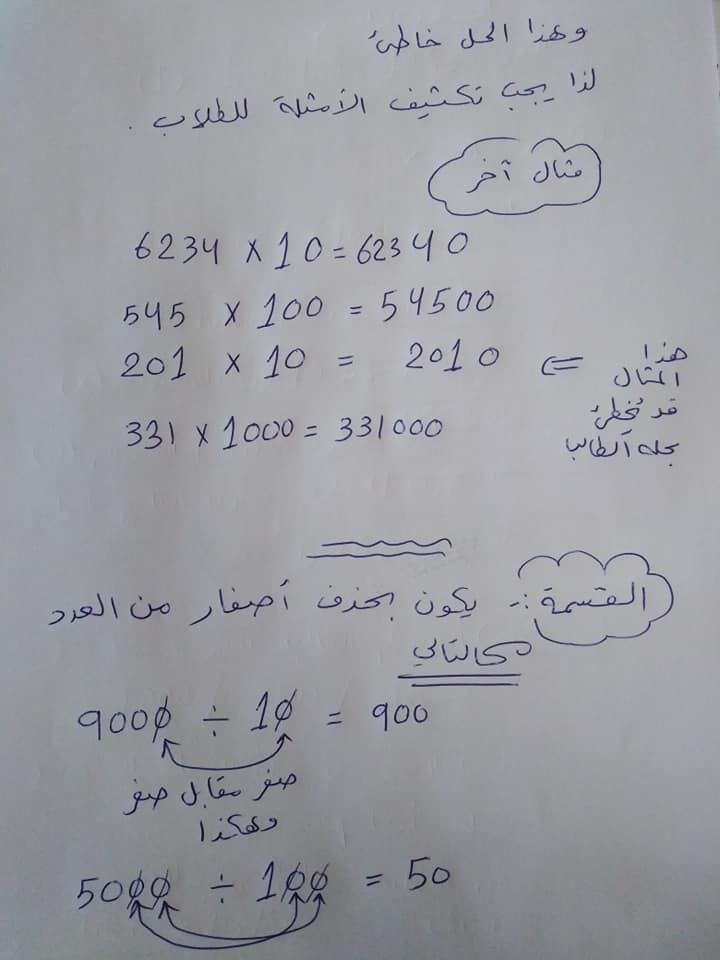 وهذا الحل خاطئ
لذا يجب تكثيف الأمثلة للطلاب .
مثال آخر
6234 x 10 = 62340
545 x 100 = 54500
201 x 10 = 2010 <= هذا المثال
قد يخطئ
بحله الطالب
331 x 1000 = 331000
القسمة :- يكون بحذف أصفار من العدد
كالتالي
9000 ÷ 10 = 900
صفر مقابل صفر
وهكذا
5000 ÷ 100 = 50